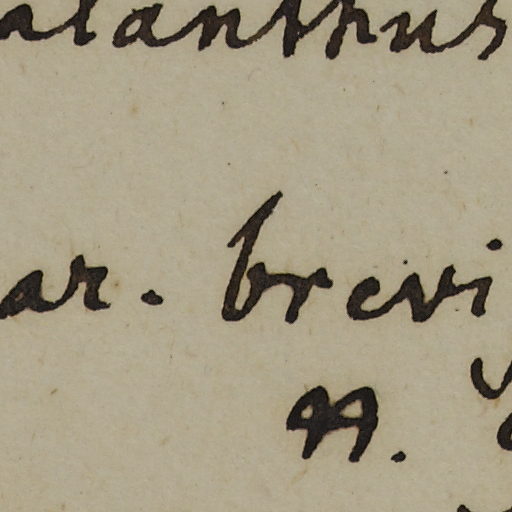 alanthus
ar. brevi